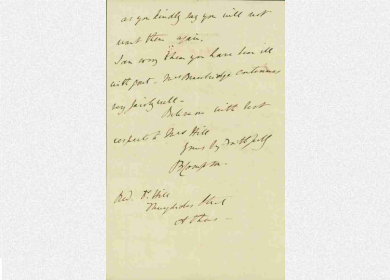 as you kindly say you will not
want them again.
I am sorry that you have been ill
with gout - Mrs Bracebridge continues
very fairly well -
Believe me with best
respects to Mrs Hill
Yours very
Revd. Dr Hill
Thucydides Street
Athens -